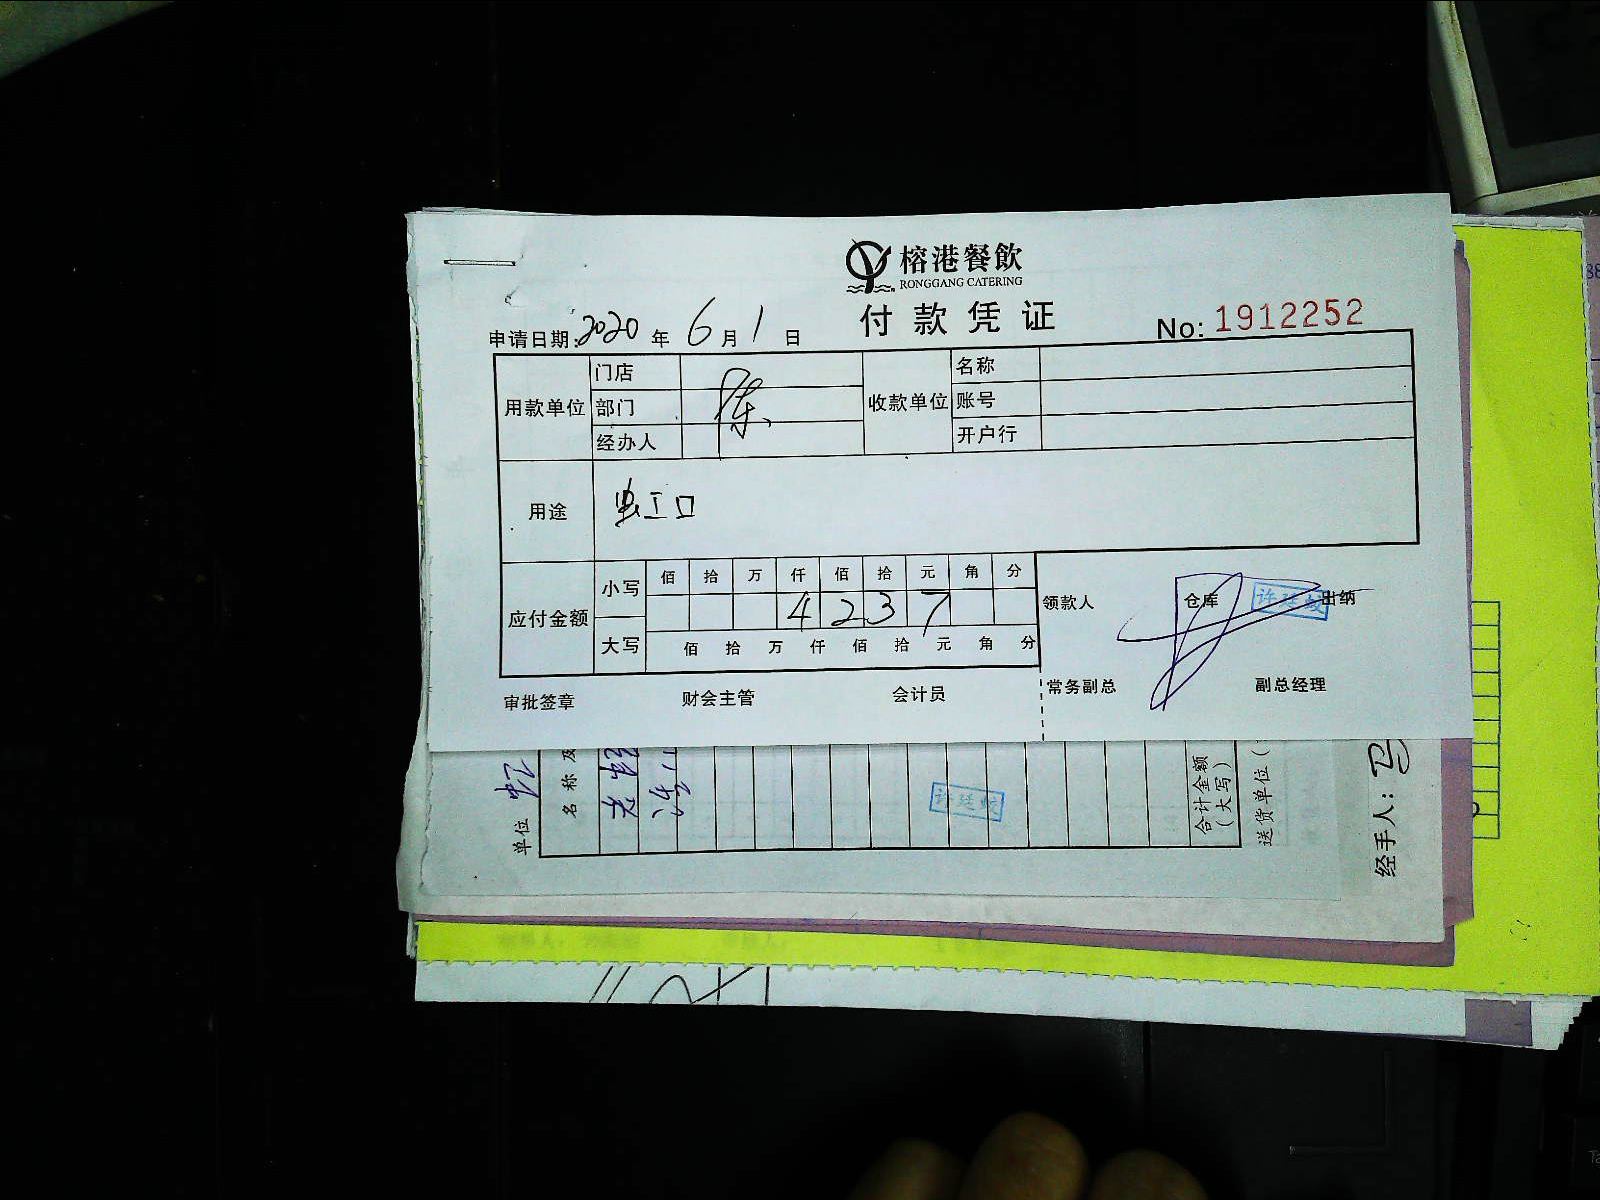 榕港餐飲
RONGGANG CATERING
付款凭证
申请日期:2020年6月1日
No: 1912252
用款单位 门店 部门 陈 经办人
收款单位 名称 账号 开户行
用途 虹口
应付金额 小写 佰 拾 万 仟 佰 拾 元 角 分
4 2 3 7
大写 佰 拾 万 仟 佰 拾 元 角 分
领款人 仓库 许廷蛟 出纳
审批签章 财会主管 会计员 常务副总 副总经理
单位
名称及
合计金额
(大写)
送货单位(
经手人: